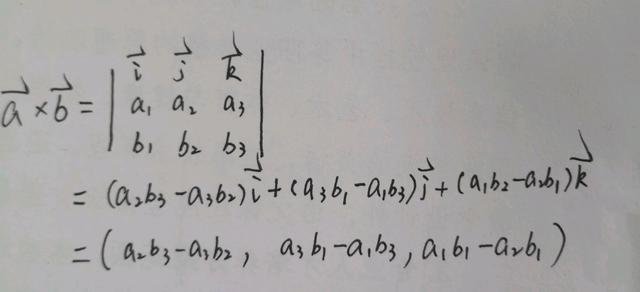 i⃗ j⃗ k⃗
a⃗ × b⃗ = | a₁ a₂ a₃ |
b₁ b₂ b₃
= (a₂b₃ - a₃b₂) i⃗ + (a₃b₁ - a₁b₃) j⃗ + (a₁b₂ - a₂b₁) k⃗
= (a₂b₃ - a₃b₂, a₃b₁ - a₁b₃, a₁b₁ - a₂b₁)